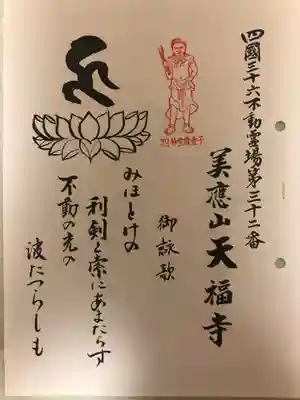 四國三十六不動霊場第三十二番
美應山天福寺
御詠歌
みほとけの
利剣と索にあまたらす
不動の充の
波たつらしも